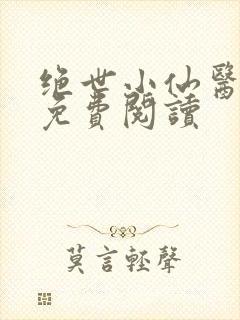 绝世小仙醫
免費閱讀
莫言輕聲